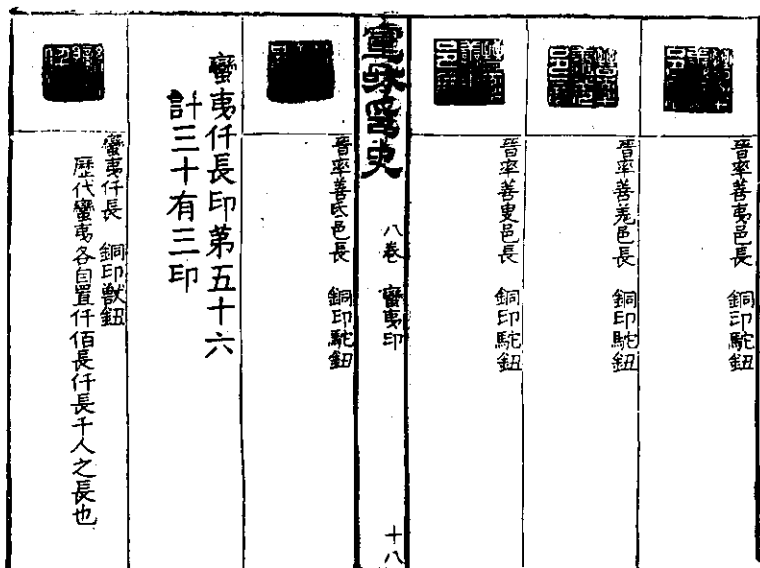 晉率善夷邑長 銅印駝鈕
晉率善羗邑長 銅印駝鈕
晉率善叟邑長 銅印駝鈕
八卷 蠻夷印
十八
晉率善氐邑長 銅印駝鈕
蠻夷仟長印第五十六
計三十有三印
蠻夷仟長 銅印獸鈕
歷代蠻夷各自置仟佰長仟長千人之長也